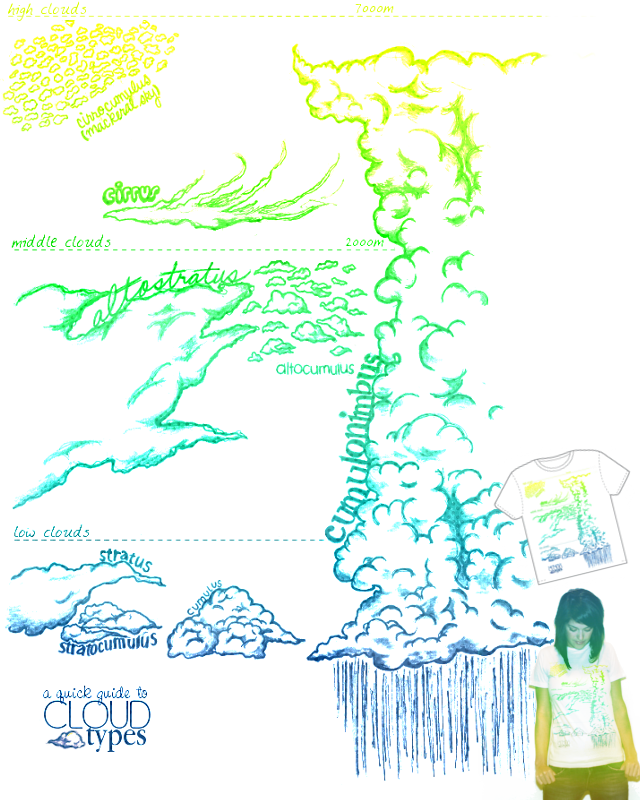 high clouds 7000m
cirrocumulus
(mackeral sky)
cirrus
middle clouds 2000m
altostratus
altocumulus
cumulonimbus
low clouds
stratus
cumulus
stratocumulus
a quick guide to
CLOUD
types